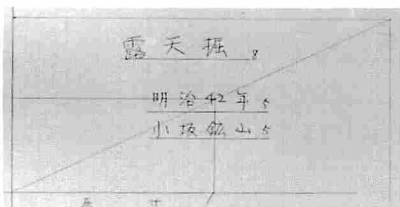 露天掘 8
明治42年 5
小坂鉱山 5